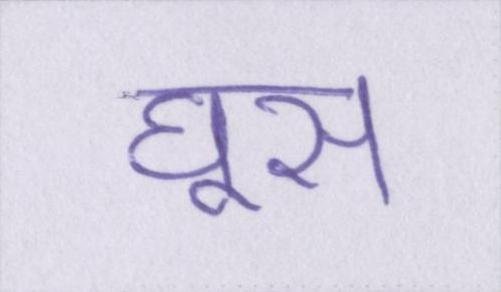 घूस